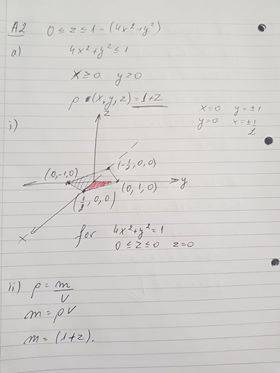 A2 0 ≤ z ≤ 1 - (4x²+y²)
a) 4x²+y² ≤ 1
x ≥ 0 y ≥ 0
ρ (x,y,z) = 1+z
x=0 y=±1
y=0 x=±1/2
i)
z
(-1/2, 0, 0)
(0,-1,0)
y
(0, 1, 0)
(1/2, 0, 0)
x
for 4x²+y²=1
0 ≤ z ≤ 0 z=0
ii) ρ = m/V
m = ρV
m = (1+z).